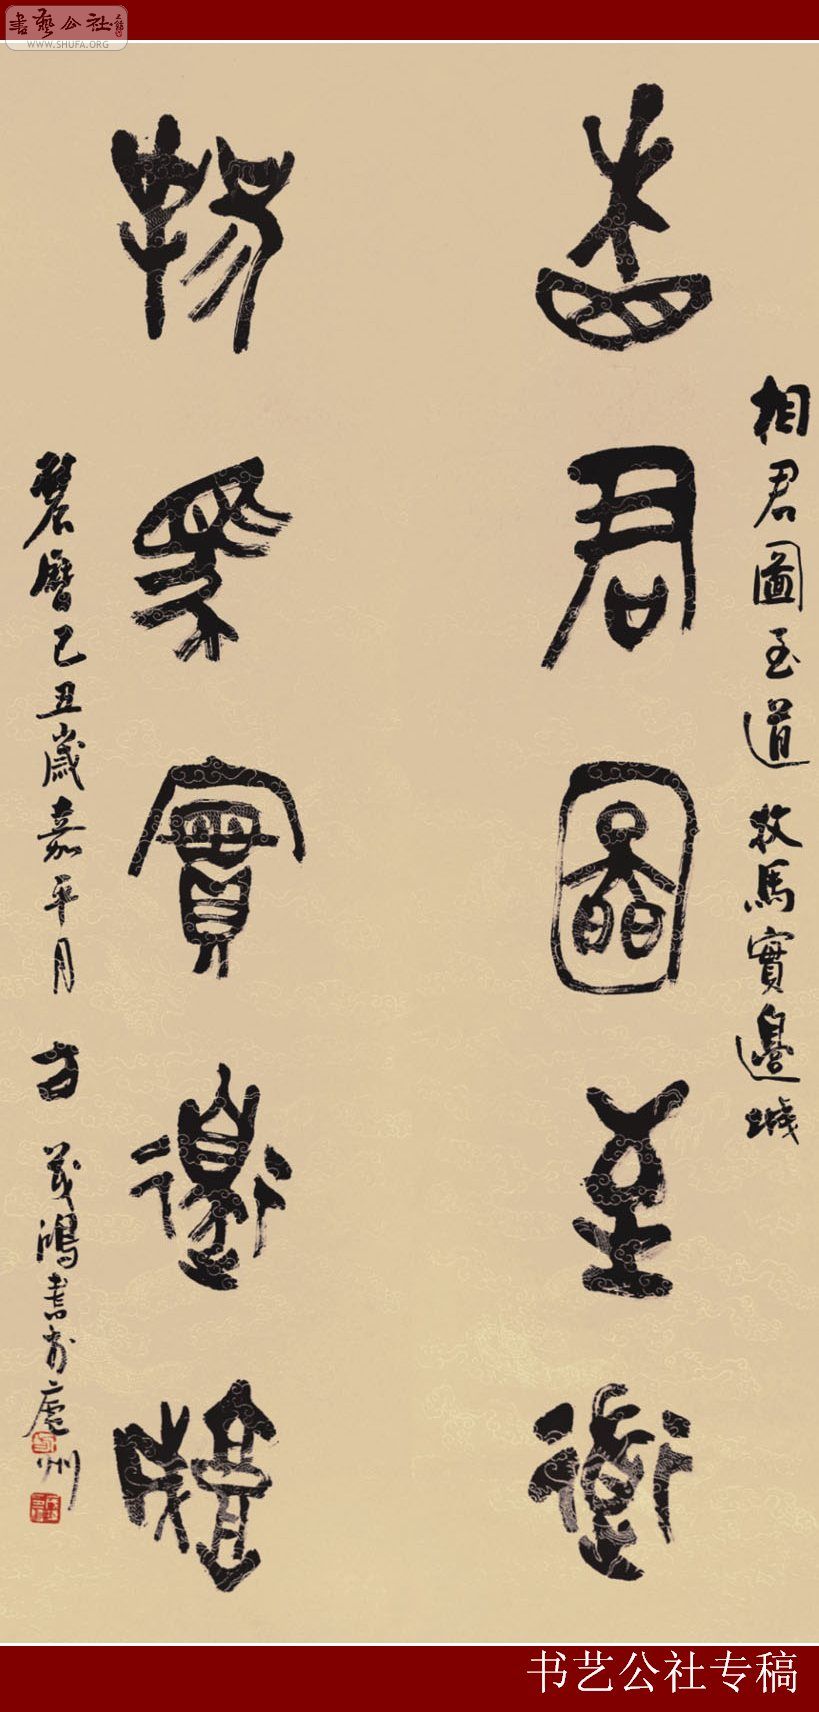 書藝公社
WWW.SHUFA.ORG
相君圖至道
牧馬實邊城
相君圖至道 牧馬實邊城
農曆己丑歲嘉平月 方茂鴻書於處州
书艺公社专稿